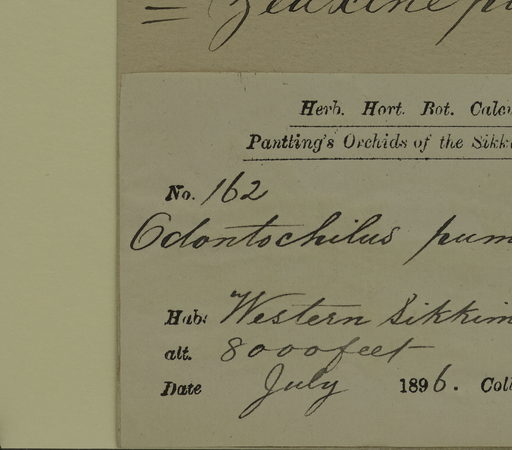 = Zeuxine pu
Herb. Hort. Bot. Calcu
Pantling's Orchids of the Sikk
No. 162
Odontochilus pum
Hab: Western Sikkim
alt. 8000 feet
Date July 1896. Coll